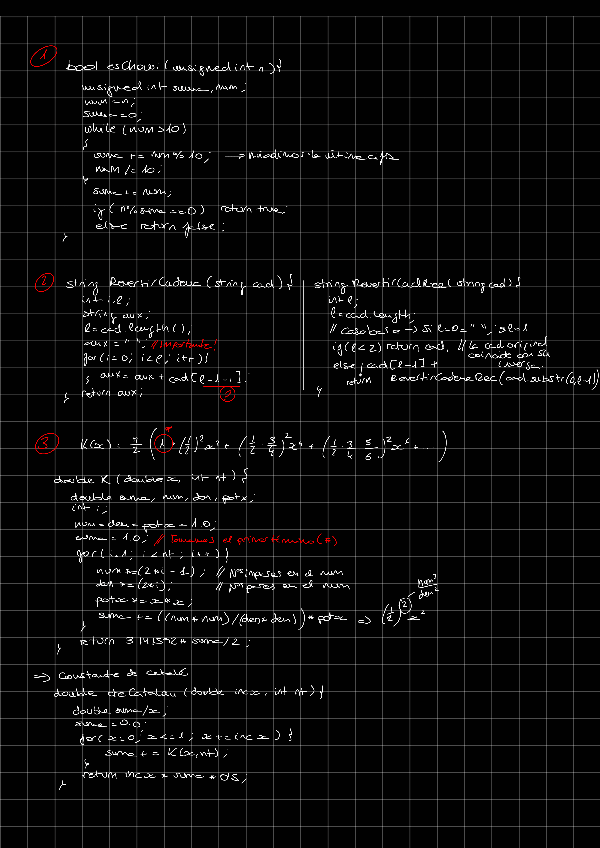 1
bool esChoxi (unsigned int n){
unsigned int suma, num;
num = n;
suma = 0;
while (num >10)
{
suma += num % 10; → Añadimos la última cifra
num /= 10;
}
suma += num;
if (n % suma == 0) return true;
else return false;
}
2
string RevertirCadena (string cad) {
int i, l;
string aux;
l = cad length();
aux = " "; // Importante!
for (i=0; i<l; i++){
aux = aux + cad [l-1-i];
}
} return aux;
string RevertirCadRec (string cad) {
int l;
l = cad. length;
// Caso base → Si l=0 = " "; si l=1
if (l<2) return cad, // la cad original
coincide con su
inversa.
else, cad [l-1] +
return RevertirCadenaRec (cad substr(0,l-1))
}
3
K(x) = π/2 (1 + (1/2)² x² + (1/2 · 3/4)² x⁴ + (1/2 · 3/4 · 5/6)² x⁶ + ... )
double K (double x, int nt) {
double suma, num, den, potx;
int i;
num = den = potx = 1.0;
suma = 1.0; // Tenemos el primer término (*)
for (i=1; i<nt; i++) {
num *= (2*i - 1); // Nº impares en el num
den *= (2*i); // Nº pares en el num
potx *= x*x;
suma += ((num * num) / (den * den)) * potx ⇒ (1/2)² x²
num²/den²
}
return 3.141592 * suma/2;
}
⇒ Constante de Catalán
double cteCatalan (double incx, int nt) {
double suma, x;
suma = 0.0;
for (x=0; x<=1; x+=incx) {
suma += K(x,nt);
}
return incx * suma * 0.5;
}